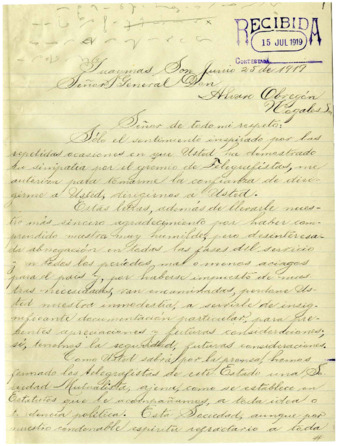 RECIBIDA
15 JUL 1919
CONTESTADA
Guaymas, Son Junio 28 de 1919
Señor General Don
Alvaro Obregón
Nogales S.
Señor de todo mi respeto:
Sólo el sentimiento inspirado por las
repetidas ocasiones en que Usted ha demostrado
su simpatía por el gremio de Telegrafistas, me
autoriza para tomarme la confianza de diri-
girme á Usted,
Estas letras, además de llevarle nues-
tro más sincero agradecimiento por haber com-
prendido nuestra muy humilde, pero desinteresa-
da abnegación en todas las fases del servicio
y en todos los periodos, más ó menos aciagos
para el país y, por haberse impuesto de nues-
tras necesidades, van encaminadas,
á servirle de insig-
nificante documentación particular, para pre-
sentes apreciaciones y futuras consideraciones,
sí, tenemos la seguridad, futuras consideraciones.
Como Usted sabrá por la prensa, hemos
formado los telegrafistas de este Estado una So-
ciedad Mutualista, ajena, como se establece en
Estatutos que le acompañamos, a toda idea o
tendencia política. Esta Sociedad, aunque por
nuestro espíritu refractario a toda